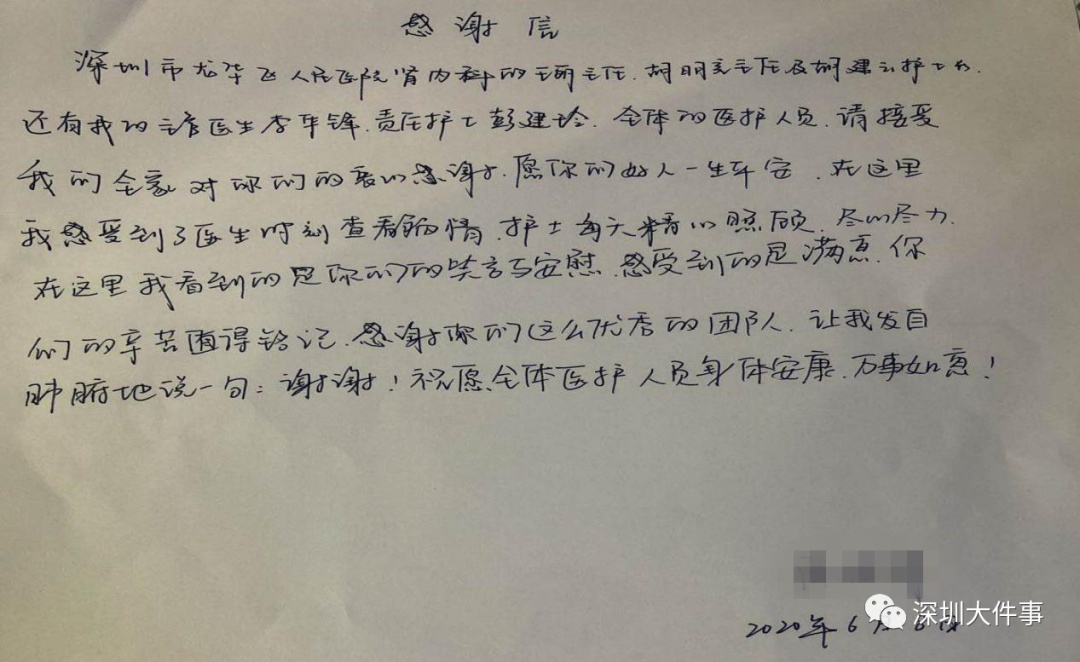 感谢信
深圳市龙华区人民医院肾内科的王丽主任.胡明亮主任及胡建云护士长.
还有我的主管医生李年锋.责任护士彭建玲.全体的医护人员.请接受
我们全家对你们的衷心感谢.愿你们好人一生平安.在这里
我感受到了医生时刻查看病情.护士每天精心照顾.尽心尽力.
在这里我看到的是你们的笑言与安慰.感受到的是满意.你
们的辛苦值得铭记.感谢你们这么优秀的团队.让我发自
肺腑地说一句:谢谢!祝愿全体医护人员身体安康.万事如意!
深圳大件事
2020年6月